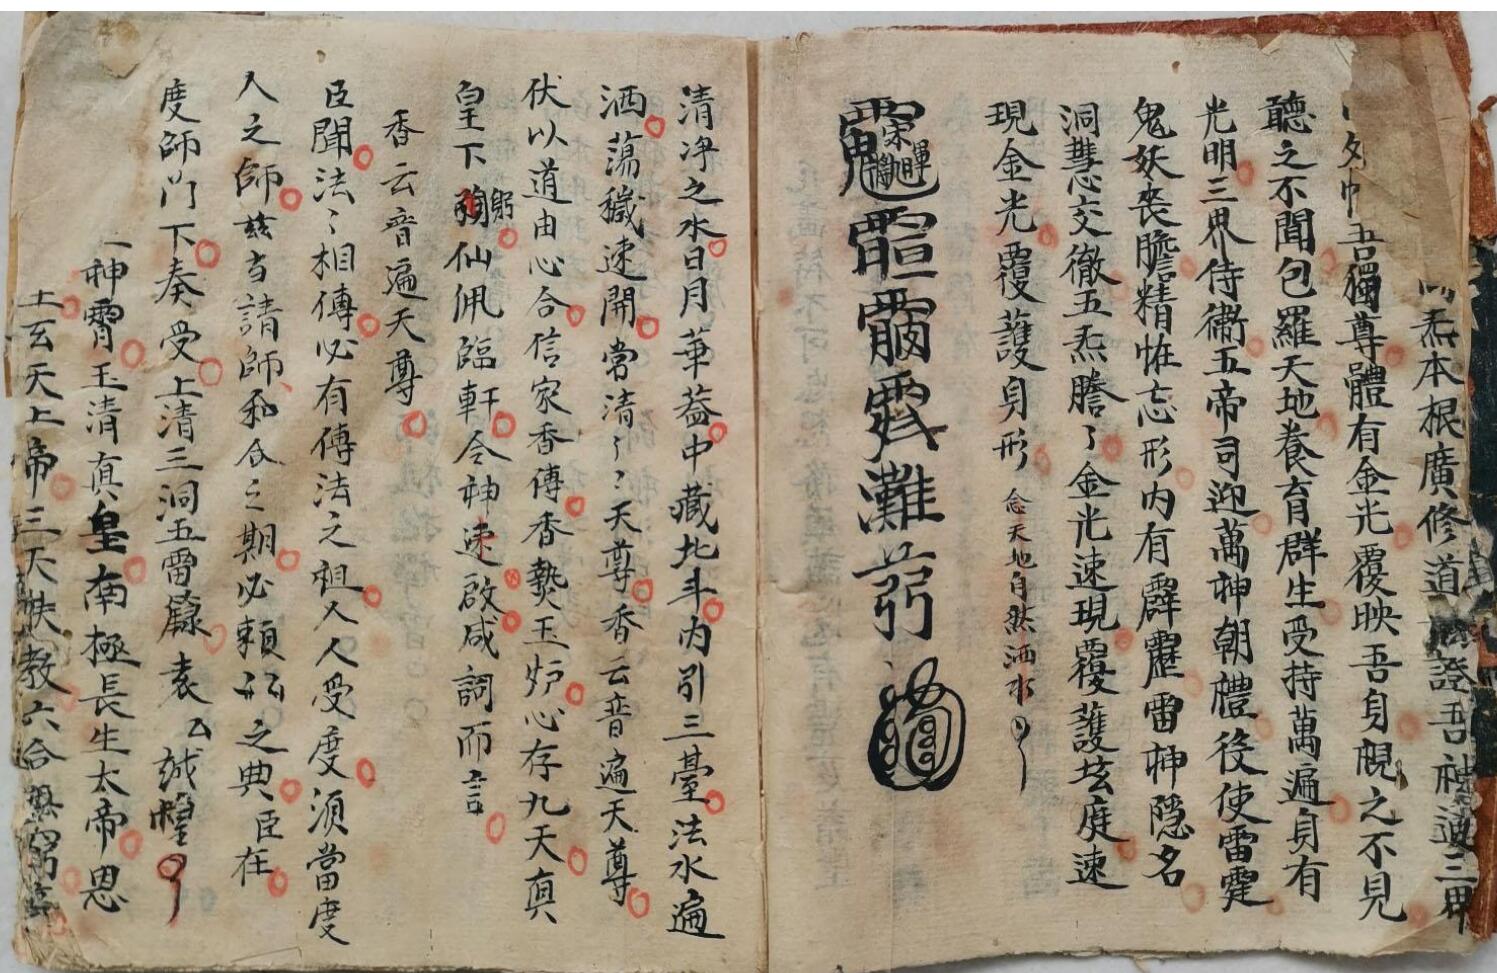 炁本根廣修道證吾神通三界
吾獨尊體有金光覆映吾身視之不見
聽之不聞包羅天地養育群生受持萬遍身有
光明三界侍衛五帝司迎萬神朝禮役使雷霆
鬼妖喪膽精恠忘形內有霹靂雷神隱名
洞慧交徹五炁騰〻金光速現覆護玄庭速
現金光覆護身形
念天地自然洒水
清净之水日月華蓋中藏北斗內引三臺法水遍
洒蕩穢速開常清〻〻天尊香云音遍天尊
伏以道由心合信家香傳香爇玉炉心存九天真
皇下躬仙佩臨軒令神速啟咸詞而言
香云音遍天尊
臣聞法〻相傳必有傳法之祖人人受度須當度
人之師茲当請師和合之期必賴 之典臣在
度師门下奏受上清三洞五雷籙
神霄玉清真皇南極長生太帝恩
玄天上帝三天扶教六合無窮